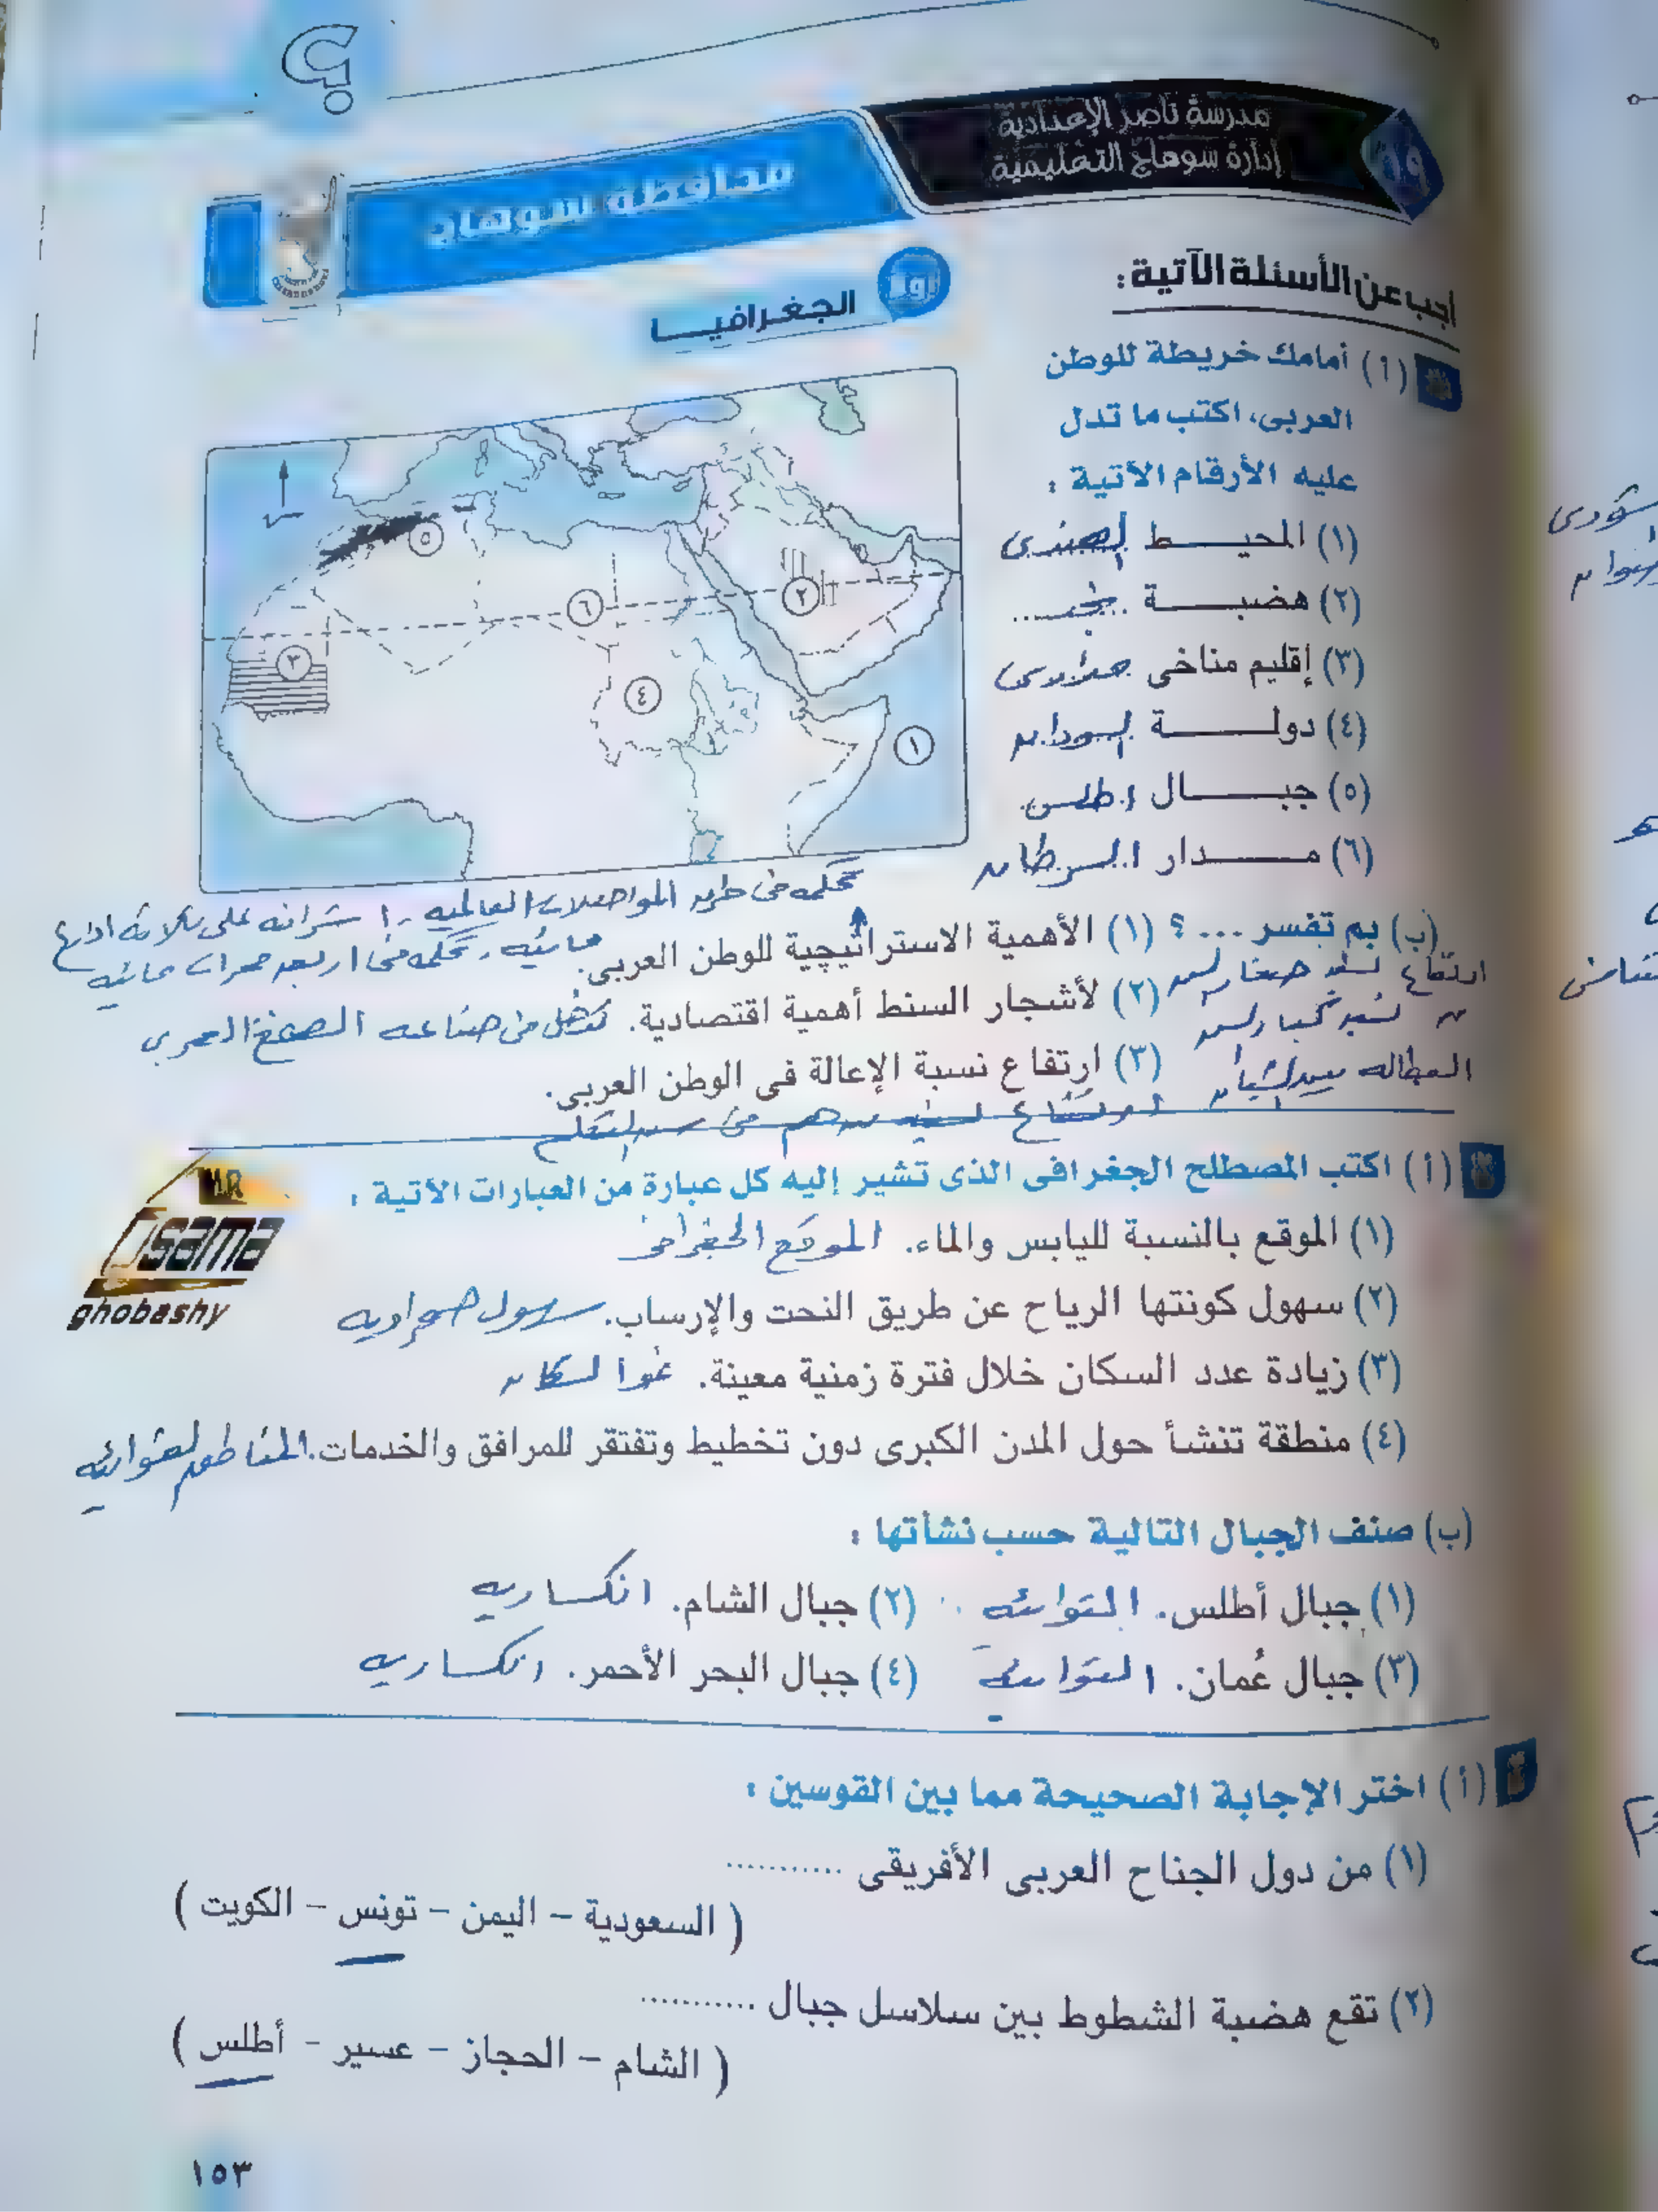 مدرسة ناصر الإعدادية
إدارة سوهاج التعليمية
١٩
محافظة سوهاج
أجب عن الأسئلة الآتية :
أولاً
الجغرافيــــا
(أ) أمامك خريطة للوطن
العربى، اكتب ما تدل
عليه الأرقام الآتية :
(١) المحيـــط الهندى
(٢) هضبـــة نجد
(٣) إقليم مناخى مدارى
(٤) دولــــة السودان
(٥) جبــــال اطلس
(٦) مـــــدار السرطان
٥
٦
٢
٣
٤
١
تحكمه فى طرق المواصلات العالميه ، اشرافه على ثلاثة اذرع
(ب) بم تفسر ... ؟ (١) الأهمية الاستراتيچية للوطن العربى.
مائيه ، تحكمه فى اربعه ممرات مائيه
(٢) لأشجار السنط أهمية اقتصادية. تدخل فى صناعه الصمغ العربي
ارتفاع نسبه صغار السن
ن نسبه كبار السن
(٣) ارتفاع نسبة الإعالة فى الوطن العربى.
البطاله بين الشباب
(أ) اكتب المصطلح الجغرافى الذى تشير إليه كل عبارة من العبارات الآتية :
MR
Osama
ghobashy
(١) الموقع بالنسبة لليابس والماء. الموقع الجغرافى
(٢) سهول كونتها الرياح عن طريق النحت والإرساب. سهول صحراويه
(٣) زيادة عدد السكان خلال فترة زمنية معينة. نمو السكان
(٤) منطقة تنشأ حول المدن الكبرى دون تخطيط وتفتقر للمرافق والخدمات. المناطق العشوائيه
(ب) صنف الجبال التالية حسب نشأتها :
(١) جبال أطلس. التوائيه (٢) جبال الشام. انكساريه
(٣) جبال عُمان. التوائيه (٤) جبال البحر الأحمر. انكساريه
(أ) اختر الإجابة الصحيحة مما بين القوسين :
(١) من دول الجناح العربى الأفريقى ...........
( السعودية – اليمن – تونس – الكويت )
(٢) تقع هضبة الشطوط بين سلاسل جبال ...........
( الشام – الحجاز – عسير – أطلس )
١٥٣